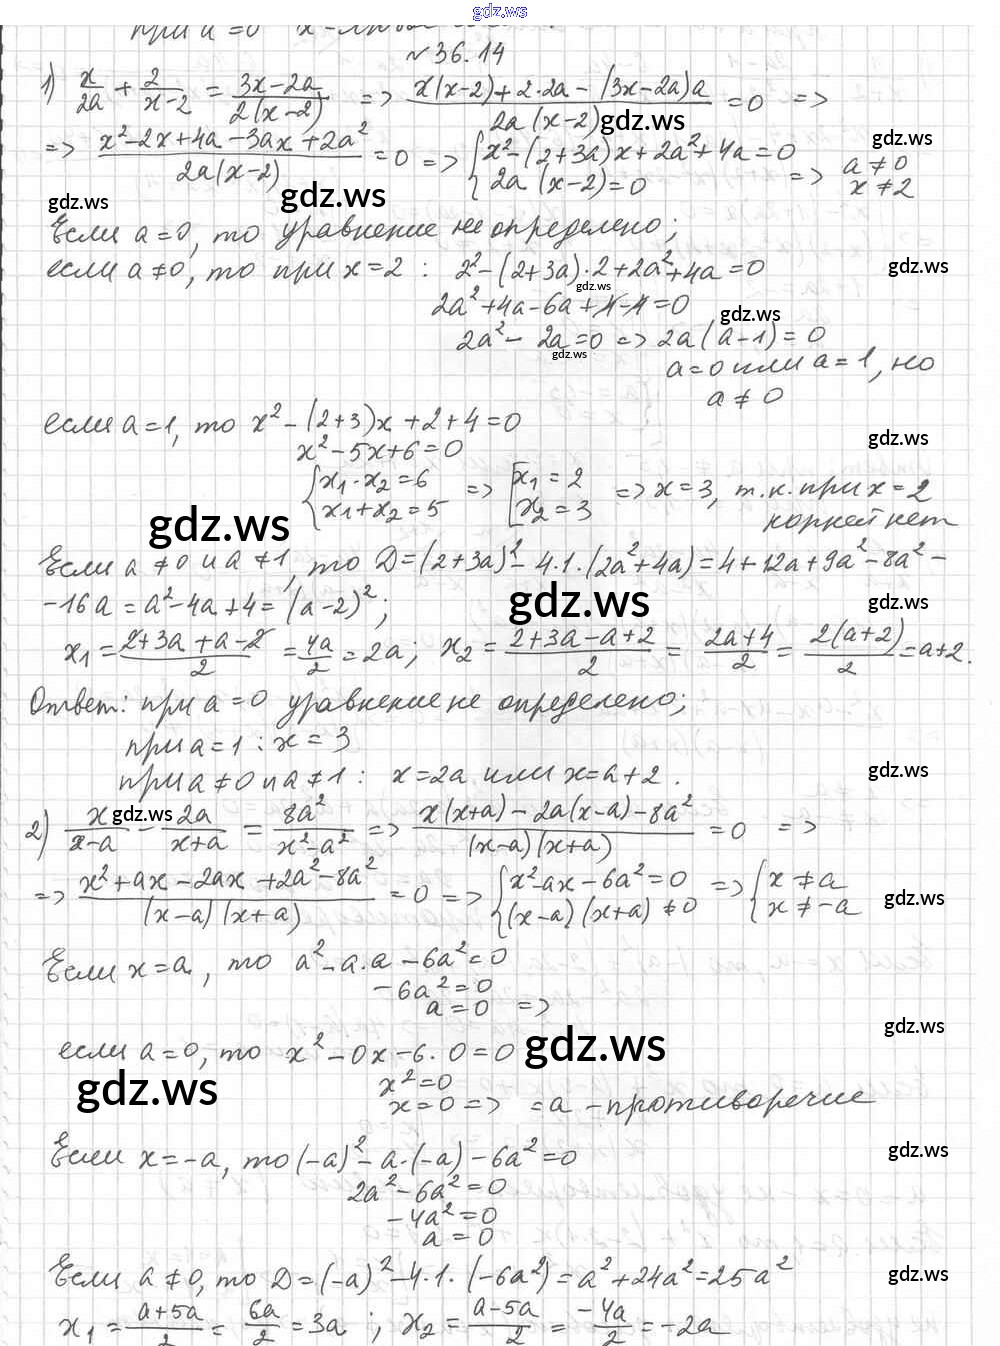 gdz.ws
при a = 0 x -
№36.14
1) x/2a + 2/(x-2) = (3x-2a)/(2(x-2)) => (x(x-2)+2·2a-(3x-2a)a)/(2a(x-2)) = 0 =>
gdz.ws
=> (x²-2x+4a-3ax+2a²)/(2a(x-2)) = 0 => { x²-(2+3a)x+2a²+4a=0 2a(x-2)=0 => a≠0 x≠2
gdz.ws
gdz.ws gdz.ws
Если a=0, то уравнение не определено;
если a≠0, то при x=2 : 2²-(2+3a)·2+2a²+4a=0
gdz.ws
gdz.ws
2a²+4a-6a+4-4=0
gdz.ws
2a²-2a=0 => 2a(a-1)=0
gdz.ws
a=0 или a=1, но
a≠0
если a=1, то x²-(2+3)x+2+4=0
gdz.ws
x²-5x+6=0
{ x₁·x₂=6 x₁+x₂=5 => [ x₁=2 x₂=3 => x=3, т.к. при x=2
корней нет
gdz.ws
Если a≠0 и a≠1, то D=(2+3a)²-4·1·(2a²+4a)=4+12a+9a²-8a²-
-16a=a²-4a+4=(a-2)²;
gdz.ws gdz.ws
x₁=(2+3a+a-2)/2=4a/2=2a; x₂=(2+3a-a+2)/2=(2a+4)/2=2(a+2)/2=a+2.
Ответ: при a=0 уравнение не определено;
при a=1 : x=3
при a≠0 и a≠1 : x=2a или x=a+2.
gdz.ws
gdz.ws
2) x/(x-a) - 2a/(x+a) = 8a²/(x²-a²) => (x(x+a)-2a(x-a)-8a²)/((x-a)(x+a)) = 0 =>
=> (x²+ax-2ax+2a²-8a²)/((x-a)(x+a)) = 0 => { x²-ax-6a²=0 (x-a)(x+a)≠0 => { x≠a x≠-a
gdz.ws
Если x=a, то a²-a·a-6a²=0
-6a²=0
a=0 =>
gdz.ws
если a=0, то x²-0x-6·0=0
gdz.ws
gdz.ws
x²=0
x=0 => =a - противоречие
Если x=-a, то (-a)²-a·(-a)-6a²=0
gdz.ws
2a²-6a²=0
-4a²=0
a=0
Если a≠0, то D=(-a)²-4·1·(-6a²)=a²+24a²=25a²
gdz.ws
x₁=(a+5a)/2=6a/2=3a ; x₂=(a-5a)/2=-4a/2=-2a